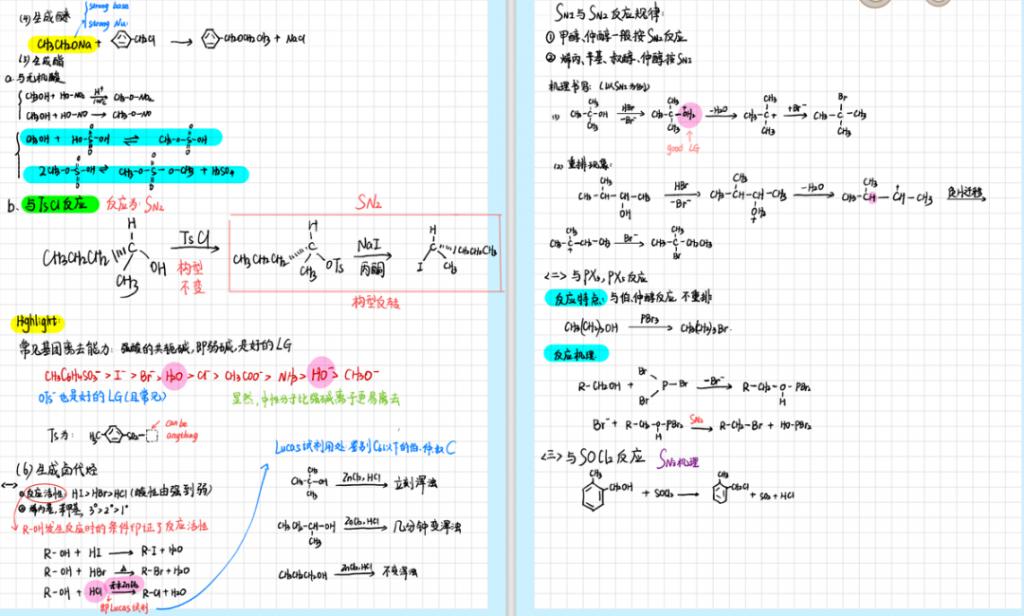 (4) 生成醚
strong base
strong Nu:
CH3CH2ONa + CH2Cl → CH2OCH2CH3 + NaCl
(5) 生成酯
a. 与无机酸
CH3OH + HO-NO2 → CH3-O-NO2
H+
CH3OH + HO-NO → CH3-O-NO
CH3OH + HO-S-OH ⇌ CH3-O-S-OH
2CH3-O-S-OH ⇌ CH3-O-S-O-CH3 + H2SO4
b. 与TsCl反应 反应为: SN2
SN2
CH3CH2CH2 C H OH CH3 TsCl 构型不变
CH3CH2CH2 C H OTs CH3 NaI 丙酮 H C I CH3 CH2CH2CH3
构型反转
Highlight:
常见基团离去能力: 强酸的共轭碱,即弱碱,是好的LG
CH3C6H4SO3- > I- > Br- > H2O > Cl- > CH3COO- > NH3 > HO- > CH3O-
OTs-也是好的LG(且常见)
显然,中性分子比强碱离子更易离去
Ts为: H3C- -SO2-
can be
anything
(6) 生成卤代烃
①反应活性: HI>HBr>HCl (酸性由强到弱)
②烯丙基,苄基, 3°>2°>1°
R-OH发生反应时的条件印证了反应活性
R-OH + HI → R-I + H2O
R-OH + HBr →Δ R-Br + H2O
R-OH + HCl → R-Cl + H2O
无水ZnCl2
即Lucas试剂
Lucas试剂用处: 鉴别C6以下的伯、仲、叔C
CH3-C-OH CH3 CH3 ZnCl2,HCl → 立刻浑浊
CH3CH2-CH-OH CH3 ZnCl2,HCl → 几分钟变浑浊
CH3CH2CH2OH ZnCl2,HCl → 不变浑浊
SN2与SN2反应规律:
① 甲醇、伯醇一般按SN2反应
② 烯丙、苄基、叔醇、仲醇按SN2
(1) CH3-C-OH CH3 CH3 HBr -Br- → CH3-C-OH2 CH3 CH3 -H2O → CH3-C+ CH3 CH3 +Br- → CH3-C-CH3 Br CH3
good LG
(2) 重排现象:
CH3-CH-CH-CH3 CH3 OH HBr -Br- → CH3-CH-CH-CH3 CH3 OH2 -H2O → CH3-CH-CH-CH3 CH3 负H迁移
CH3-C-CH2-CH3 CH3 Br- → CH3-C-CH2CH3 CH3 Br
<二> 与PX3, PX5反应
反应特点: 与伯、仲醇反应 不重排
CH3(CH2)3OH PBr3 → CH3(CH2)3Br.
反应机理:
R-CH2OH + Br P-Br Br -Br- → R-CH2-O-PBr2 H
Br- + R-CH2-O-PBr2 H SN2 → R-CH2-Br + HO-PBr2
<三> 与SOCl2反应 SN2机理
CH3 CH2OH + SOCl2 → CH3 CH2Cl + SO2 + HCl